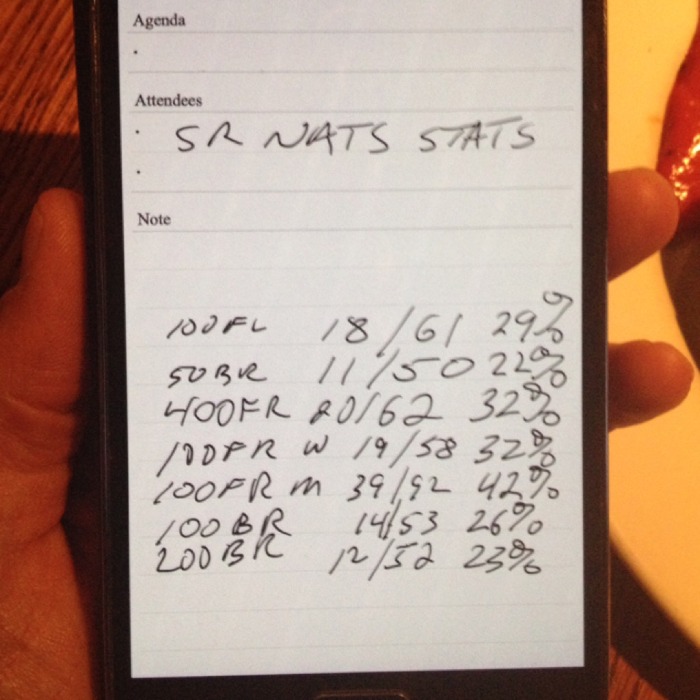 Agenda
Attendees
SR NATS STATS
Note
100FL 18/61 29%
50BR 11/50 22%
400FR 20/62 32%
100FR W 19/58 32%
100FR M 39/92 42%
100BR 14/53 26%
200BR 12/52 23%